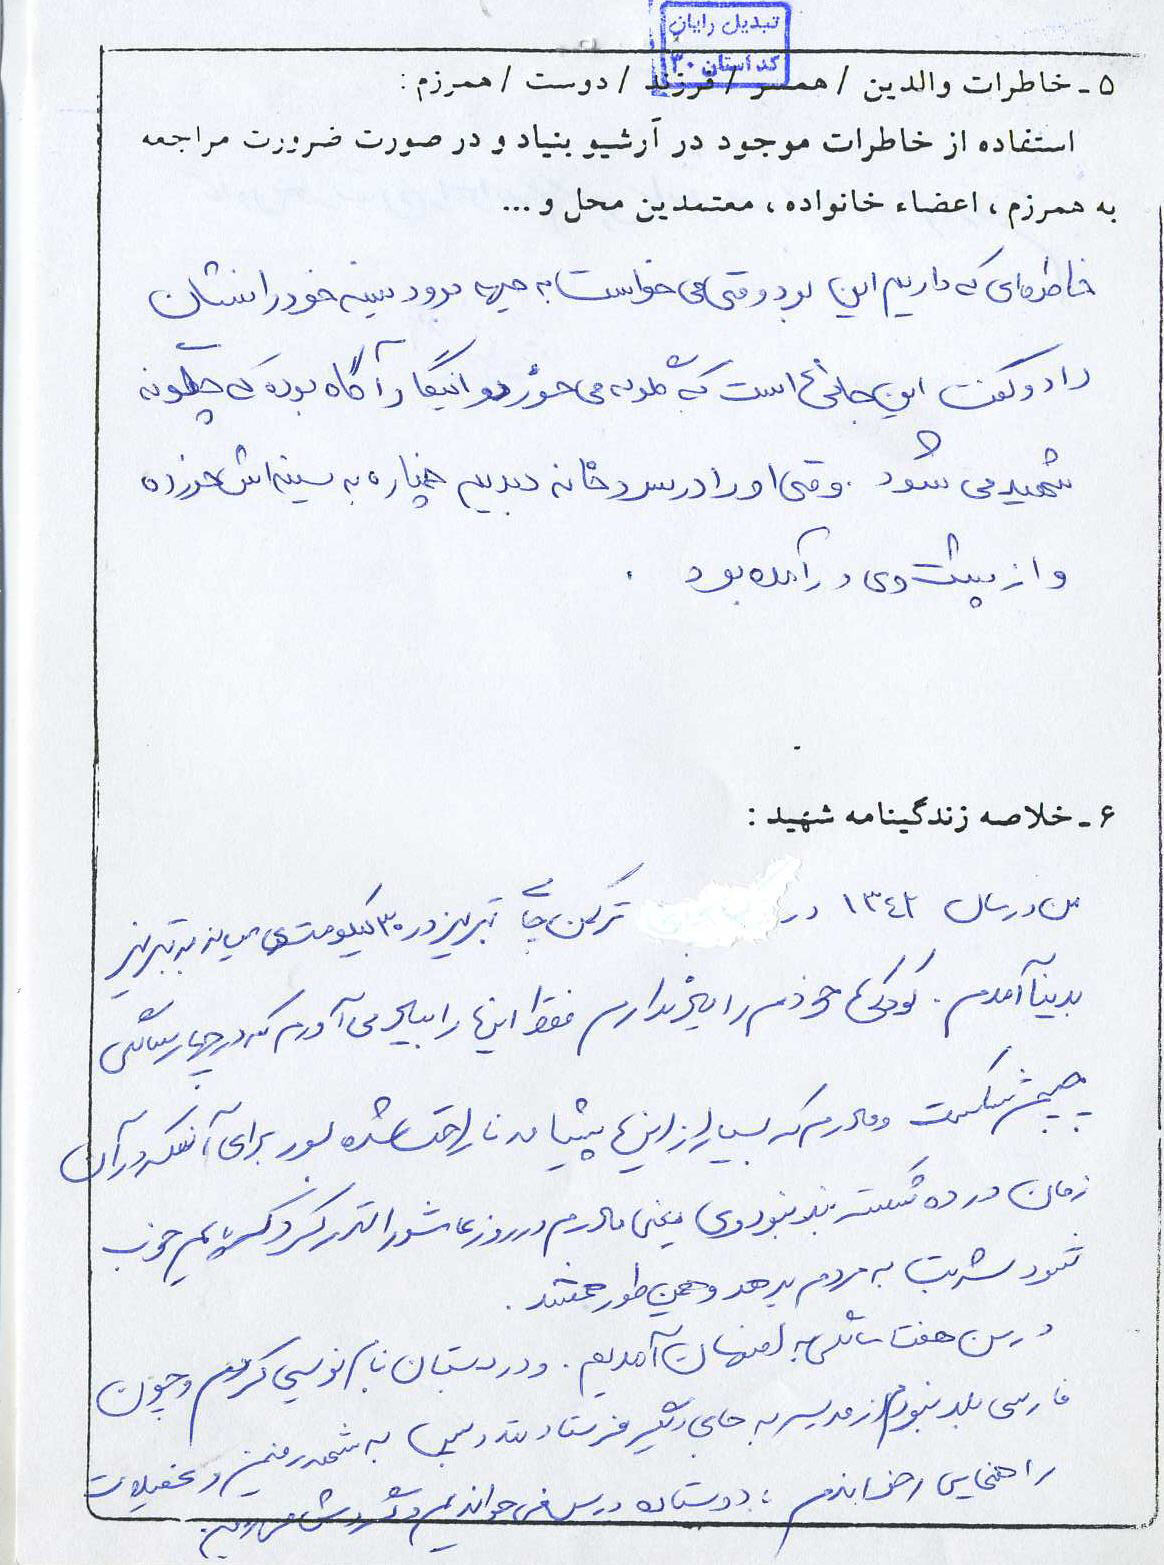 تبدیل رایان
کد استان ۳۰
۵ - خاطرات والدین / همسر / فرزند / دوست / همرزم :
استفاده از خاطرات موجود در آرشیو بنیاد و در صورت ضرورت مراجعه
به همرزم ، اعضاء خانواده ، معتمدین محل و ...
خاطره‌ای که داریم این بود وقتی می خواست به جبهه برود سینه خود را نشان
داد و گفت این جائی است که گلوله می خورد و انیگار آگاه بوده که چگونه
شهید می شود . وقتی او را در سردخانه دیدیم خمپاره به سینه‌اش خورده
و از پشت وی در آمده بود .
۶ - خلاصه زندگینامه شهید :
من در سال ۱۳۴۲ در ترکمن چای تبریز در ۳۰ کیلومتری میانه به تبریز
بدنیا آمدم . کودکی خودم را بخاطر ندارم فقط اینها را بیاد می آورم که در چهار سالگی
شکست و مادرم که بسیار از این پیشامد ناراحت شده بود برای آنکه در آن
زمان در ده شکسته بند نبود و یعنی مادرم در روز عاشورا نذر کرد که پایم خوب
شود شربت به مردم بدهد و همین طور هم شد .
در سن هفت سالگی به اصفهان آمدیم . و در دبستان نام نویسی کردم و چون
فارسی بلد نبودم از مدرسه به جای دیگر فرستادند و سپس به رفتیم و تحصیلات
راهنمایی را خواندم ، با دوستان درس می خواندیم و گردش می رفتیم .